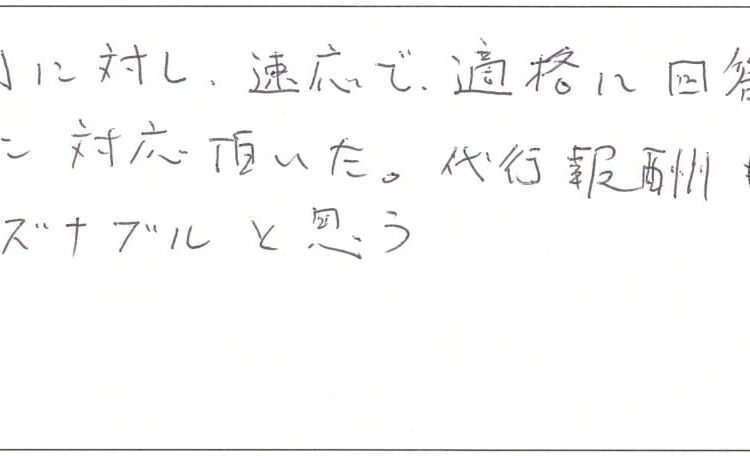 に対し、速応で、適格に回答
対応頂いた。代行報酬も
ズナブルと思う